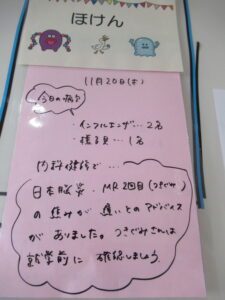 ほけん
11月20日(木)
今日の病欠
・インフルエンザ…2名
・様子見…1名
内科健診で…
日本脳炎、MR2回目(つきぐみ)
の進みが遅いとのアドバイス
がありました。つきぐみさんは
就学前に確認しましょう。